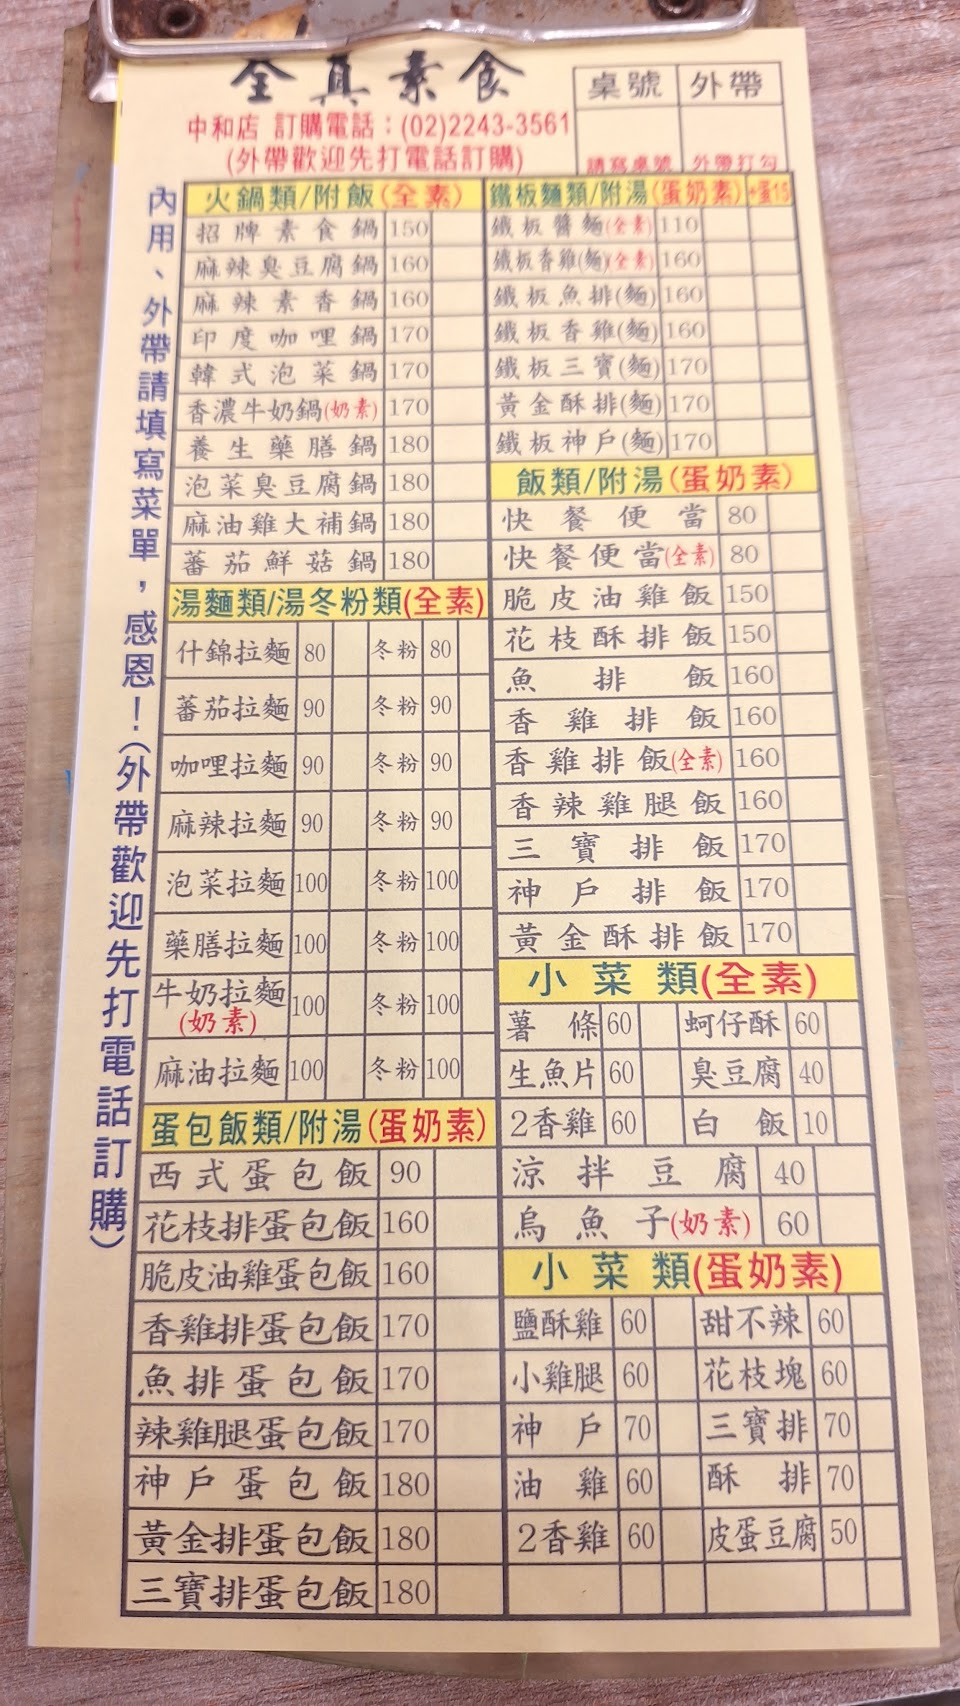 全真素食
中和店 訂購電話：(02)2243-3561
(外帶歡迎先打電話訂購)
桌號 外帶
請寫桌號 外帶打勾
內用、外帶請填寫菜單，感恩！(外帶歡迎先打電話訂購)
火鍋類/附飯(全素)
招牌素食鍋 150
麻辣臭豆腐鍋 160
麻辣素香鍋 160
印度咖哩鍋 170
韓式泡菜鍋 170
香濃牛奶鍋(奶素) 170
養生藥膳鍋 180
泡菜臭豆腐鍋 180
麻油雞大補鍋 180
蕃茄鮮菇鍋 180
湯麵類/湯冬粉類(全素)
什錦拉麵 80 冬粉 80
蕃茄拉麵 90 冬粉 90
咖哩拉麵 90 冬粉 90
麻辣拉麵 90 冬粉 90
泡菜拉麵 100 冬粉 100
藥膳拉麵 100 冬粉 100
牛奶拉麵(奶素) 100 冬粉 100
麻油拉麵 100 冬粉 100
蛋包飯類/附湯(蛋奶素)
西式蛋包飯 90
花枝排蛋包飯 160
脆皮油雞蛋包飯 160
香雞排蛋包飯 170
魚排蛋包飯 170
辣雞腿蛋包飯 170
神戶蛋包飯 180
黃金排蛋包飯 180
三寶排蛋包飯 180
鐵板麵類/附湯(蛋奶素) +蛋15
鐵板醬麵(全素) 110
鐵板香雞(麵)(全素) 160
鐵板魚排(麵) 160
鐵板香雞(麵) 160
鐵板三寶(麵) 170
黃金酥排(麵) 170
鐵板神戶(麵) 170
飯類/附湯(蛋奶素)
快餐便當 80
快餐便當(全素) 80
脆皮油雞飯 150
花枝酥排飯 150
魚排飯 160
香雞排飯 160
香雞排飯(全素) 160
香辣雞腿飯 160
三寶排飯 170
神戶排飯 170
黃金酥排飯 170
小菜類(全素)
薯條 60 蚵仔酥 60
生魚片 60 臭豆腐 40
2香雞 60 白飯 10
涼拌豆腐 40
烏魚子(奶素) 60
小菜類(蛋奶素)
鹽酥雞 60 甜不辣 60
小雞腿 60 花枝塊 60
神戶 70 三寶排 70
油雞 60 酥排 70
2香雞 60 皮蛋豆腐 50